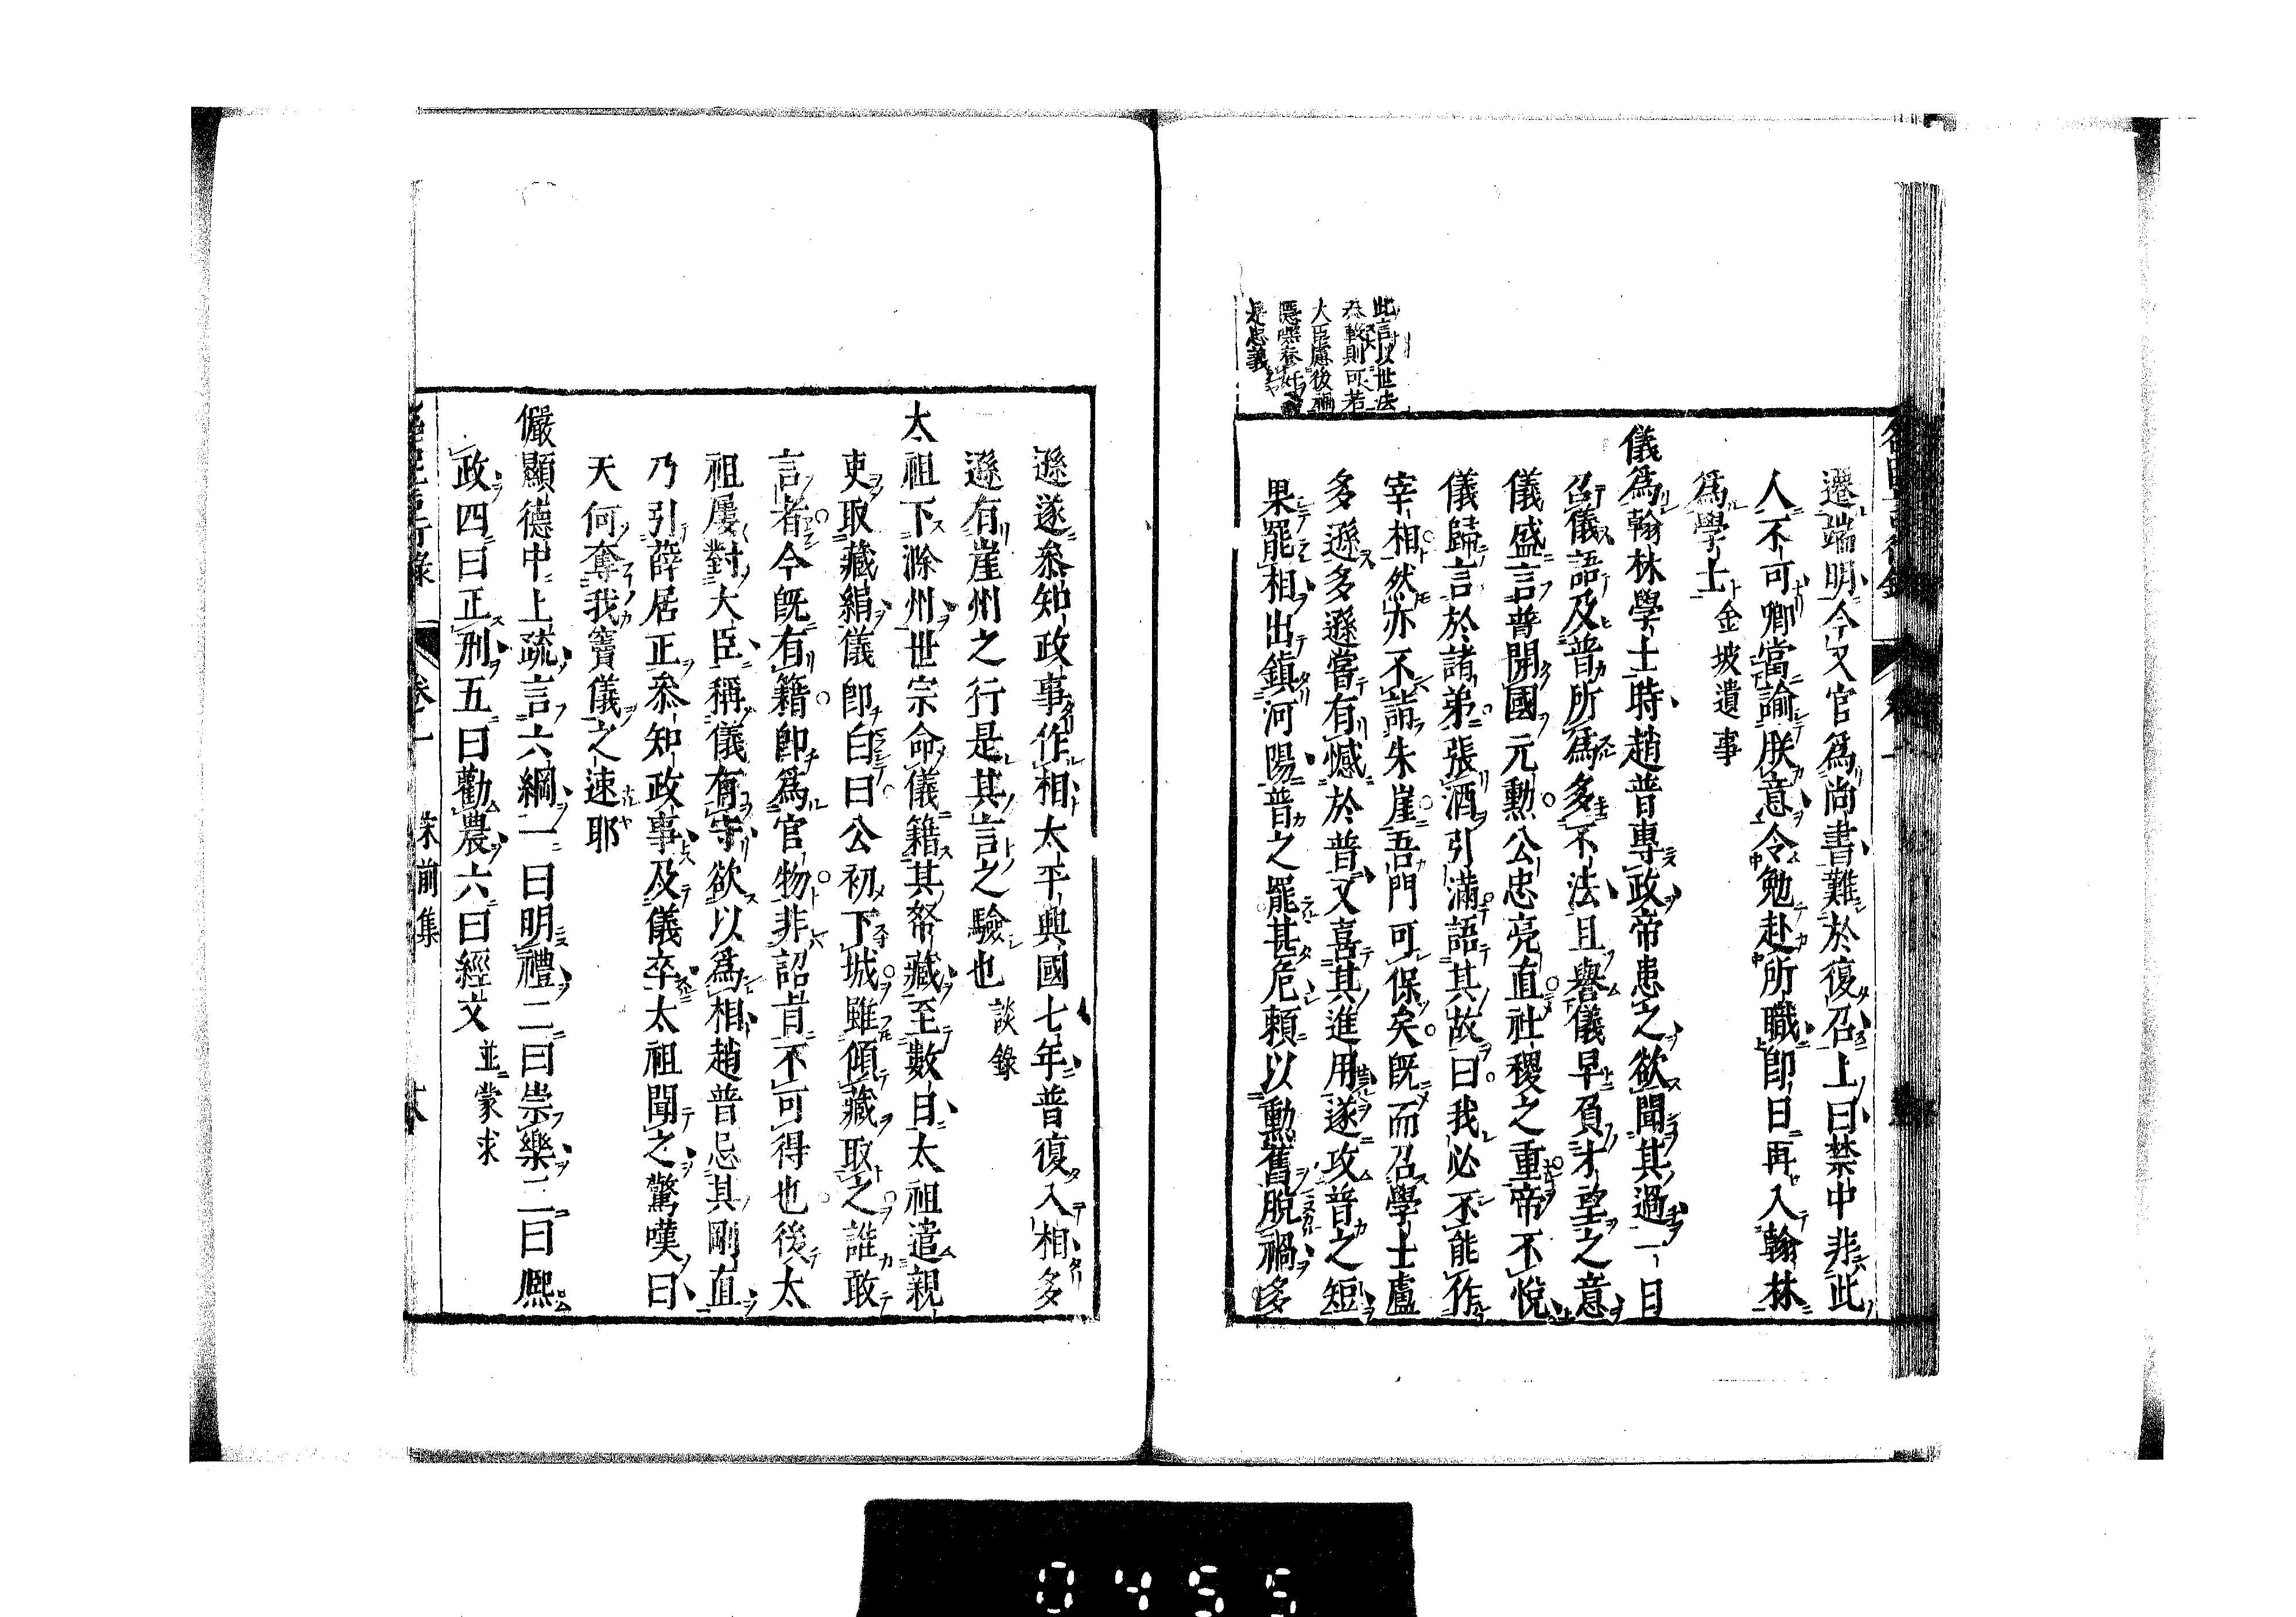 此言以世法
叅較則可若
大臣慮後禍
是忠義
遷端明今又官爲尚書難於復召上曰禁中非此
人不可卿當諭朕意令勉赴所職卽日再入翰林
爲學士 金坡遺事
儀爲翰林學士時趙普專政帝患之欲聞其過一日
召儀語及普所爲多不法且譽儀早負才望之意
儀盛言普開國元勳公忠亮直社稷之重帝不悅
儀歸言於諸弟張酒引滿語其故曰我必不能作
宰相然亦不詣朱崖吾門可保矣旣而召學士盧
多遜多遜嘗有憾於普又喜其進用遂攻普之短
果罷相出鎭河陽普之罷甚危頼以勳舊脫禍多
遜遂叅知政事作相太平興國七年普復入相多
遜有崖州之行是其言之驗也 談錄
太祖下滁州世宗命儀籍其帑藏至數日太祖遣親
吏取藏絹儀卽白曰公初下城雖傾藏取之誰敢
言者今旣有籍卽爲官物非詔旨不可得也後太
祖屢對大臣稱儀有守欲以爲相趙普忌其剛直
乃引薛居正叅知政事及儀卒太祖聞之驚嘆曰
天何奪我竇儀之速耶
儼顯德中上疏言六綱一曰明禮二曰崇樂三曰熙
政四曰正刑五曰勸農六曰經文 並蒙求
卷一 宋前集
0455